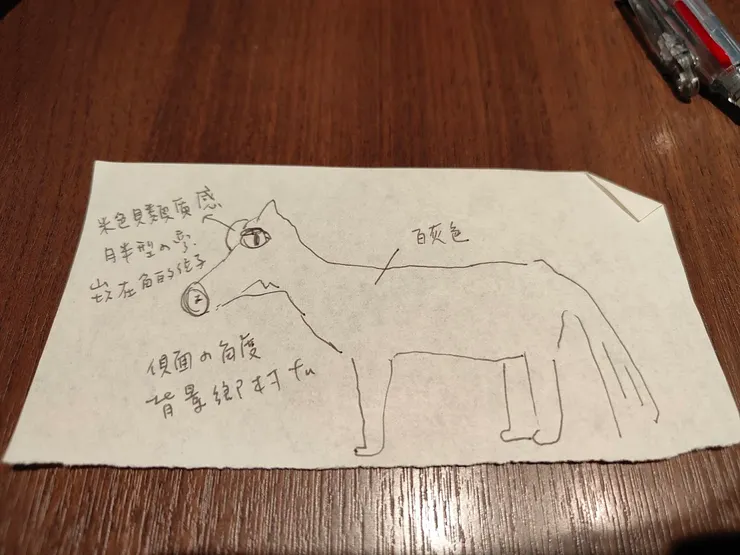 米色貝類質感
月半型の
在角的位子
百灰色
側面の角度
背景鄉村fu